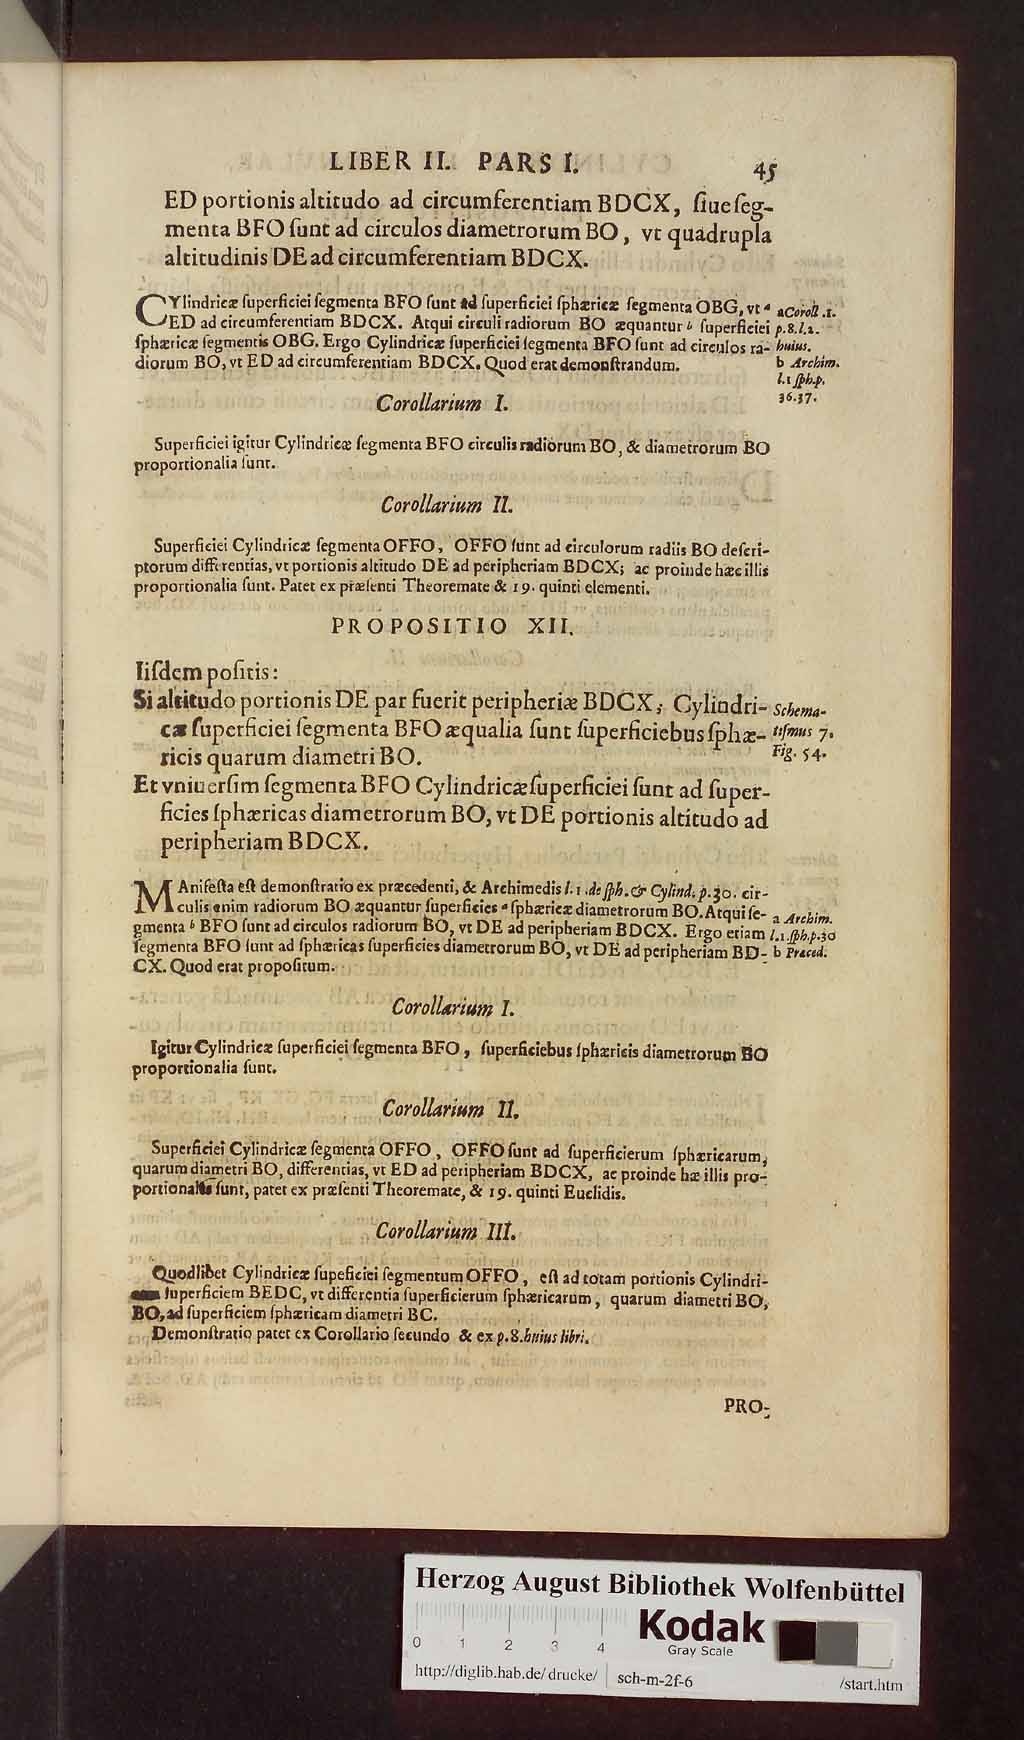 LIBER II. PARS I. 45
ED portionis altitudo ad circumferentiam BDCX, ſiue ſeg-
menta BFO ſunt ad circulos diametrorum BO, vt quadrupla
altitudinis DE ad circumferentiam BDCX.
CYlindricæ ſuperficiei ſegmenta BFO ſunt ad ſuperficiei ſphæricæ ſegmenta OBG, vt ᵃ
ED ad circumferentiam BDCX. Atqui circuli radiorum BO æquantur ᵇ ſuperficiei
ſphæricæ ſegmentis OBG. Ergo Cylindricæ ſuperficiei ſegmenta BFO ſunt ad circulos ra-
diorum BO, vt ED ad circumferentiam BDCX. Quod erat demonſtrandum.
a Coroll. 1.
p. 8. l. 2.
huius.
b Archim.
l. 1 ſph. p.
36. 37.
Corollarium I.
Superficiei igitur Cylindricæ ſegmenta BFO circulis radiorum BO, & diametrorum BO
proportionalia ſunt.
Corollarium II.
Superficiei Cylindricæ ſegmenta OFFO, OFFO ſunt ad circulorum radiis BO deſcri-
ptorum differentias, vt portionis altitudo DE ad peripheriam BDCX; ac proinde hæc illis
proportionalia ſunt. Patet ex præſenti Theoremate & 19. quinti elementi.
PROPOSITIO XII.
Iiſdem poſitis:
Si altitudo portionis DE par fuerit peripheriæ BDCX, Cylindri-
cæ ſuperficiei ſegmenta BFO æqualia ſunt ſuperficiebus ſphæ-
ricis quarum diametri BO.
Schema-
tiſmus 7.
Fig. 54.
Et vniuerſim ſegmenta BFO Cylindricæ ſuperficiei ſunt ad ſuper-
ficies ſphæricas diametrorum BO, vt DE portionis altitudo ad
peripheriam BDCX.
MAnifeſta eſt demonſtratio ex præcedenti, & Archimedis l. 1. de ſph. & Cylind. p. 30. cir-
culis enim radiorum BO æquantur ſuperficies ᵃ ſphæricæ diametrorum BO. Atqui ſe-
gmenta ᵇ BFO ſunt ad circulos radiorum BO, vt DE ad peripheriam BDCX. Ergo etiam
ſegmenta BFO ſunt ad ſphæricas ſuperficies diametrorum BO, vt DE ad peripheriam BD-
CX. Quod erat propoſitum.
a Archim.
l. 1. ſph. p. 30
b Præced.
Corollarium I.
Igitur Cylindricæ ſuperficiei ſegmenta BFO, ſuperficiebus ſphæricis diametrorum BO
proportionalia ſunt.
Corollarium II.
Superficiei Cylindricæ ſegmenta OFFO, OFFO ſunt ad ſuperficierum ſphæricarum,
quarum diametri BO, differentias, vt ED ad peripheriam BDCX, ac proinde hæ illis pro-
portionales ſunt, patet ex præſenti Theoremate, & 19. quinti Euclidis.
Corollarium III.
Quodlibet Cylindricæ ſupeficiei ſegmentum OFFO, eſt ad totam portionis Cylindri-
ſuperficiem BEDC, vt differentia ſuperficierum ſphæricarum, quarum diametri BO,
BO, ad ſuperficiem ſphæricam diametri BC.
Demonſtratio patet ex Corollario ſecundo & ex p. 8. huius libri.
PRO-
Herzog August Bibliothek Wolfenbüttel
0 1 2 3 4
Kodak
Gray Scale
http://diglib.hab.de/drucke/ sch-m-2f-6 /start.htm